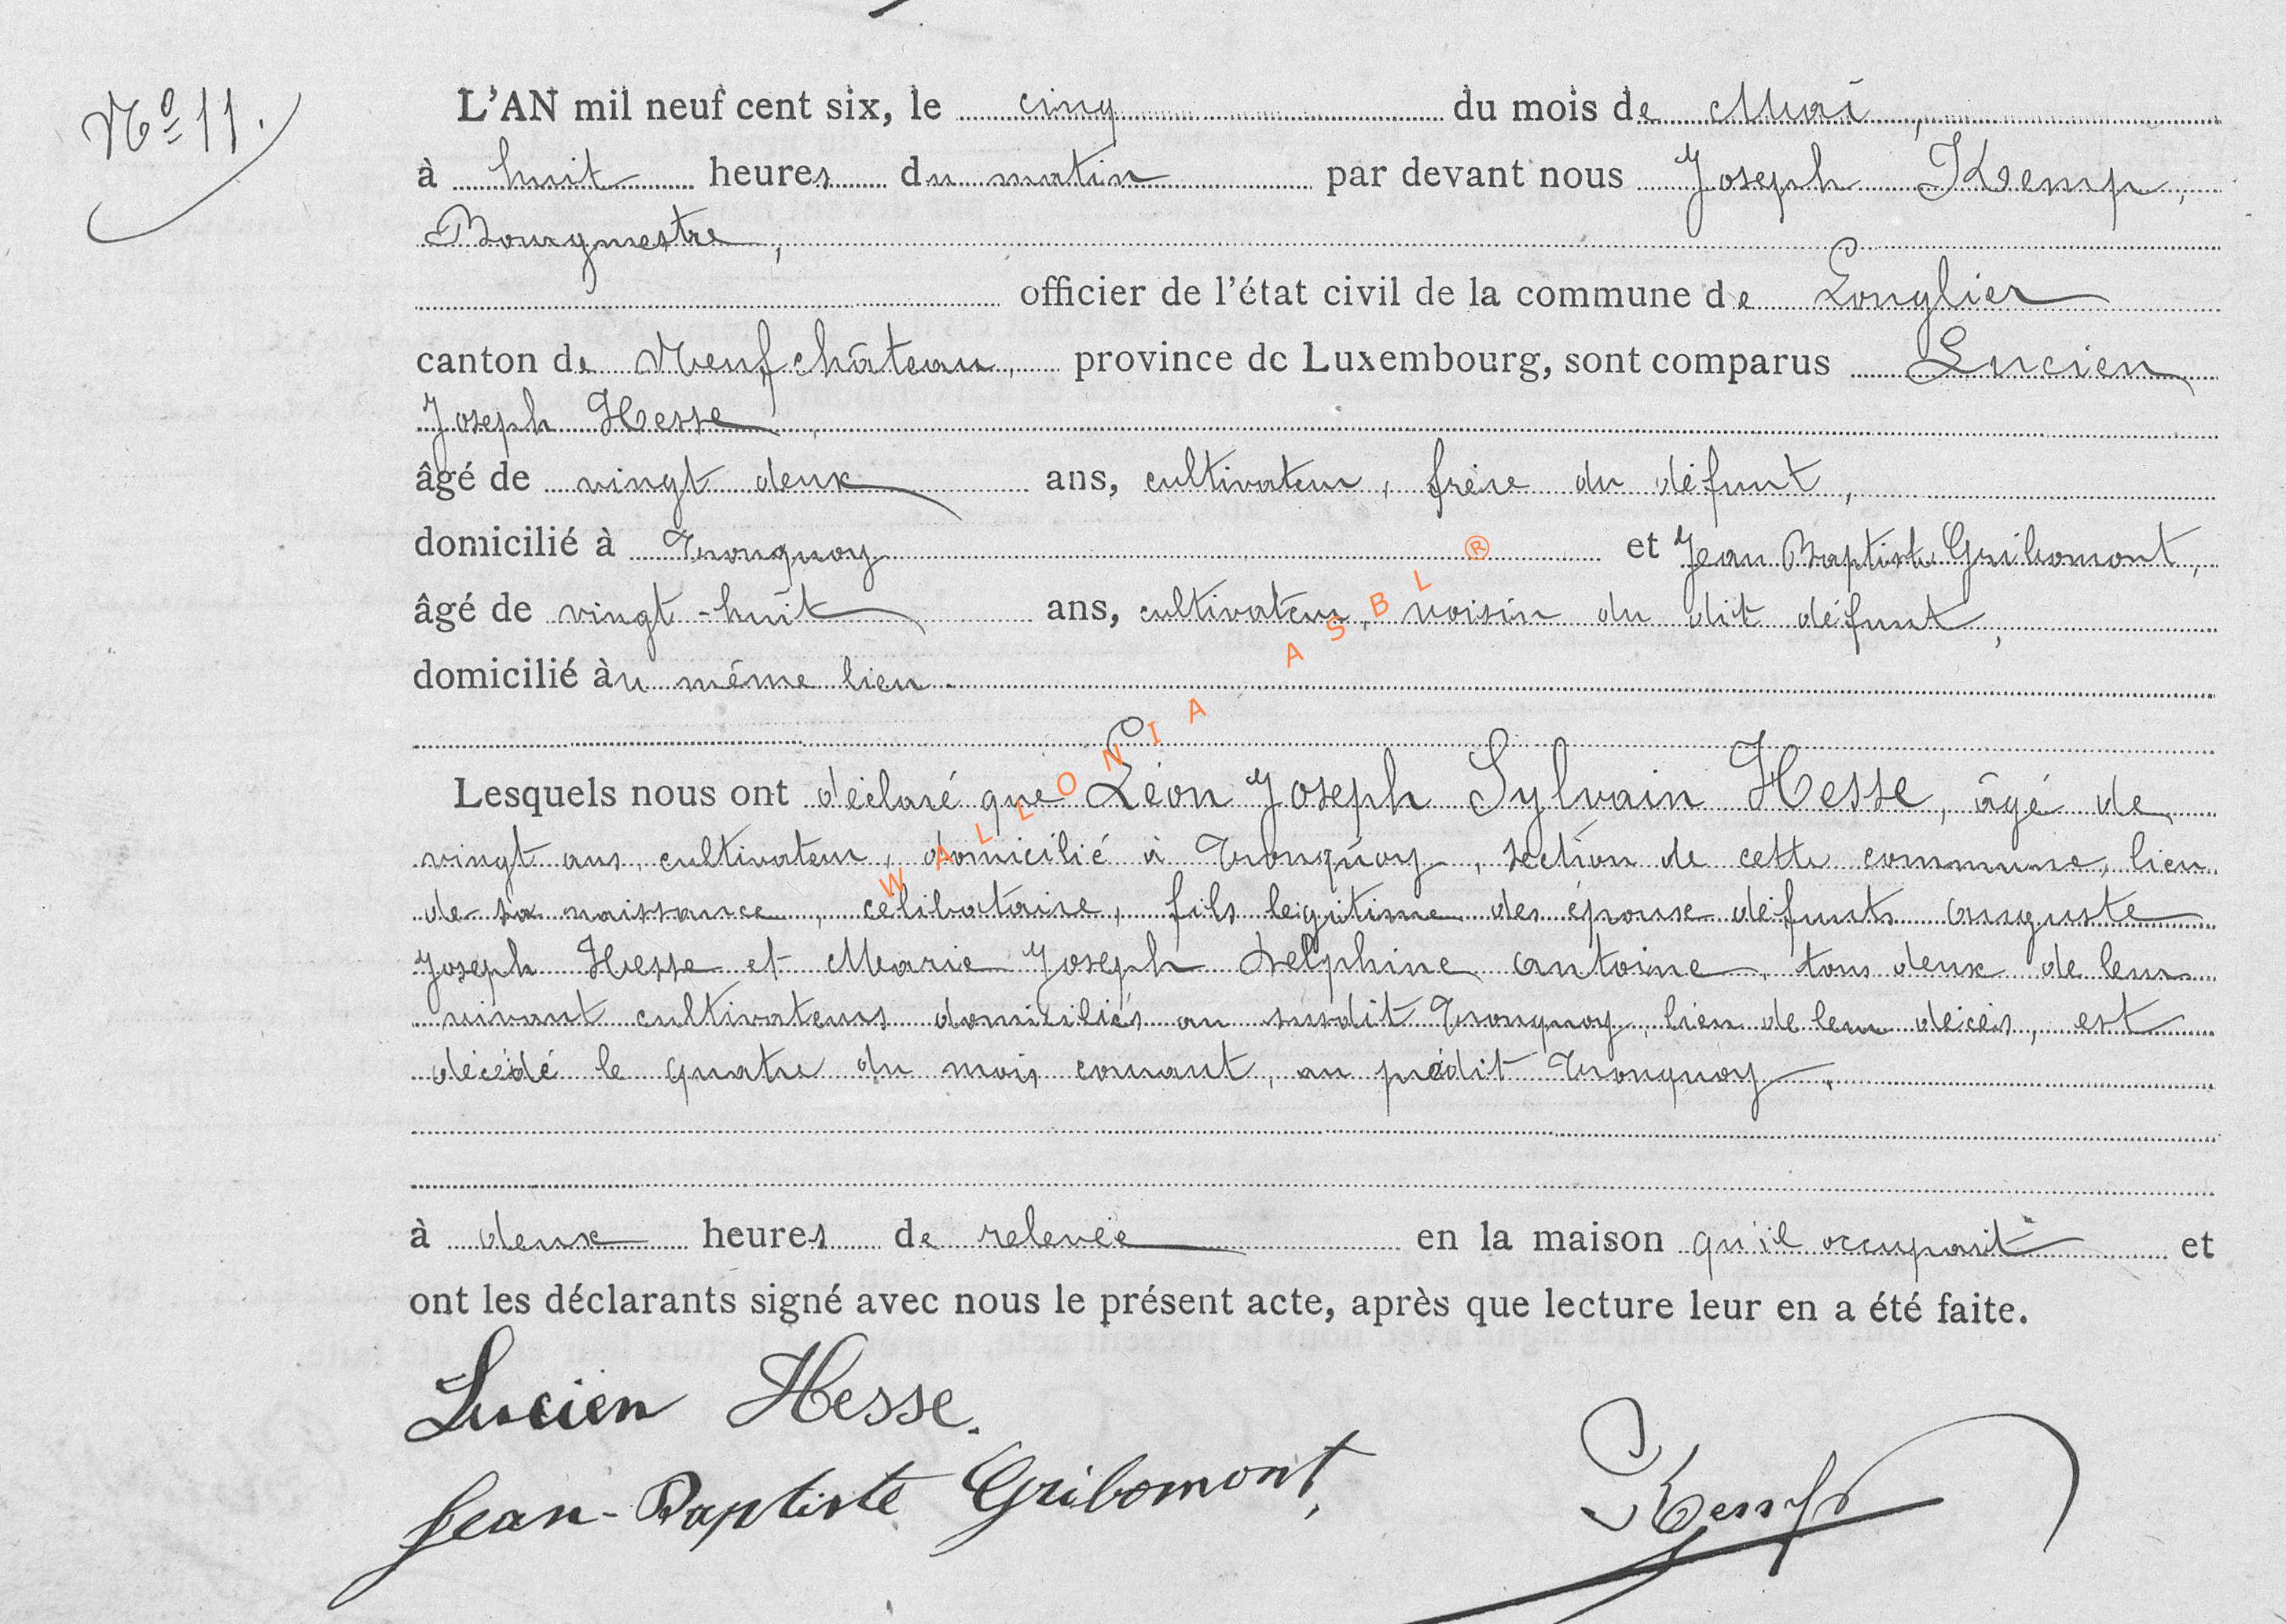 Nº 11.
L'AN mil neuf cent six, le cinq du mois de Mai,
à huit heures du matin par devant nous Joseph Kemp,
Bourgmestre,
officier de l'état civil de la commune de Longlier
canton de Neufchâteau, province de Luxembourg, sont comparus Lucien
Joseph Hesse,
âgé de vingt deux ans, cultivateur, frère du défunt,
domicilié à Tronquoy et Jean Baptiste Gribomont,
âgé de vingt-huit ans, cultivateur, voisin du dit défunt,
domicilié àu même lieu.
Lesquels nous ont déclaré que Léon Joseph Sylvain Hesse, âgé de
vingt ans, cultivateur, domicilié à Tronquoy, section de cette commune, lieu
de sa naissance, célibataire, fils légitime des époux défunts Auguste
Joseph Hesse et Marie Joseph Delphine Antoine, tous deux de leur
vivant cultivateurs domiciliés au susdit Tronquoy, lieu de leur décès, est
décédé le quatre du mois courant, au prédit Tronquoy.
à deux heures de relevée en la maison qu'il occupait et
ont les déclarants signé avec nous le présent acte, après que lecture leur en a été faite.
Lucien Hesse.
Jean-Baptiste Gribomont.
Kemp
WALLONIA ASBL ®